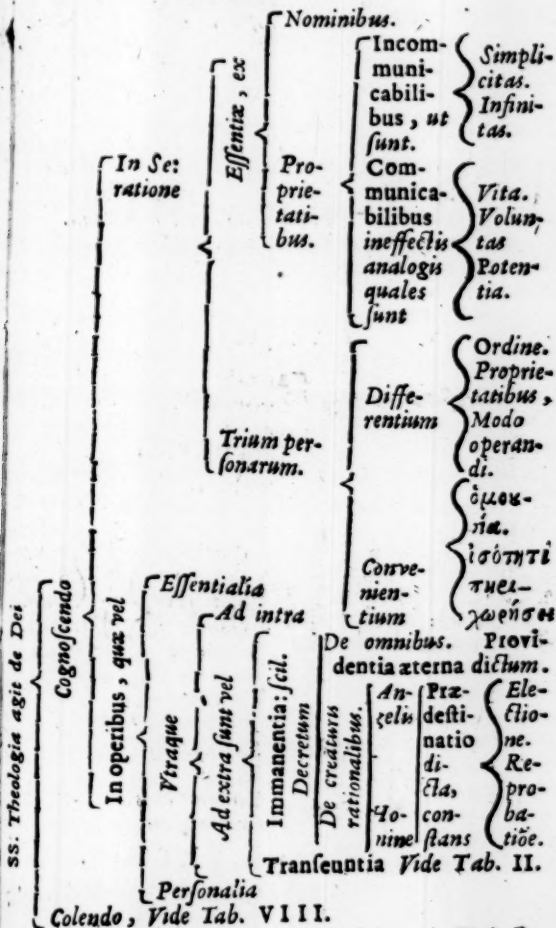 SS. Theologia agit de Dei
Cognoscendo
In Se:
ratione
Essentiæ, ex
Nominibus.
Pro-
prie-
tati-
bus.
Incom-
muni-
cabili-
bus, ut
sunt.
Simpli-
citas.
Infini-
tas.
Com-
munica-
bilibus
ineffectis
analogis
quales
sunt
Vita.
Volun-
tas
Poten-
tia.
Trium per-
sonarum.
Diffe-
rentium
Ordine.
Proprie-
tatibus,
Modo
operan-
di.
Conve-
nien-
tium
ὁμου-
σία.
ἰσότητι
περι-
χωρήσει
In operibus, quæ vel
Essentialia
Vtraque
Ad intra
Ad extra sunt vel
Immanentia. scil.
Decretum
De omnibus. Provi-
dentia æterna dictum.
De creaturis
rationalibus.
An-
gelis
Ho-
nine
Præ-
desti-
natio
di-
cta,
con-
stans
Ele-
ctio-
ne.
Re-
pro-
ba-
tiõe.
Transeuntia Vide Tab. II.
Personalia
Colendo, Vide Tab. VIII.